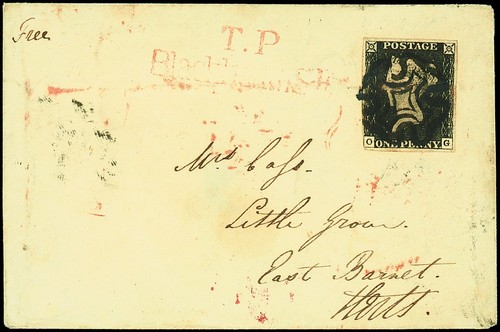 Free
T.P
POSTAGE
O G
ONE PENNY
Mrs Cass.
Little Grove.
East Barnet.
Herts.